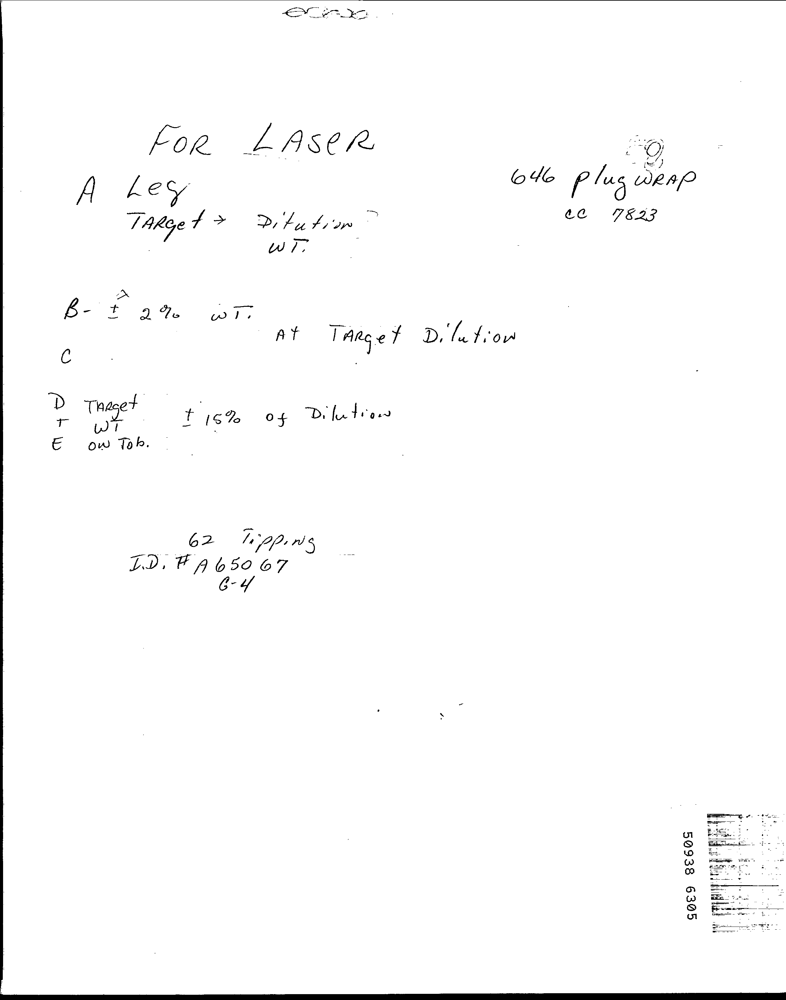 FOR LASER
A Leg
TARget → Dilution
WT.
646 plug WRAP
CC 7823
B- ± 2% WT.
At TARget Dilution
C
D TARget
WT ± 15% of Dilution
E ON Tob.
62 Tipping
I.D. # A65067
G-4
50938 6305